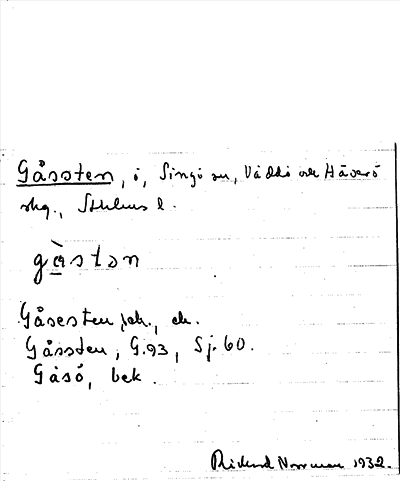 Gåssten, ö, Singö sn, Väddö och Häverö
skg., Sthlms l.
gȧ̀stən
Gåsesten, ek.
Gåssten, G.93, Sj.60.
Gåsö, bek.
Rickard Norrman 1932.